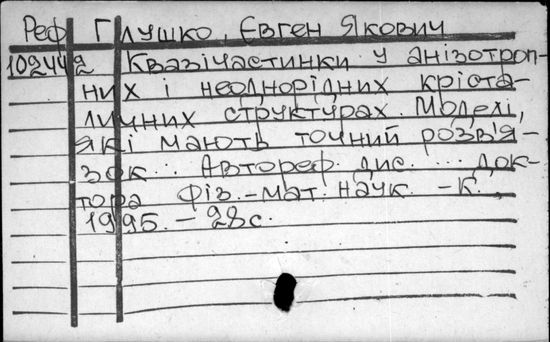 Реф Глушко, Євген Якович
102442 Квазічастинки у анізотроп-
них і неоднорідних кріста-
личних структурах. Моделі,
які мають точний розв'я-
зок : Автореф. дис. ... док-
тора фіз.-мат. наук. - К.,
1995. - 28с.